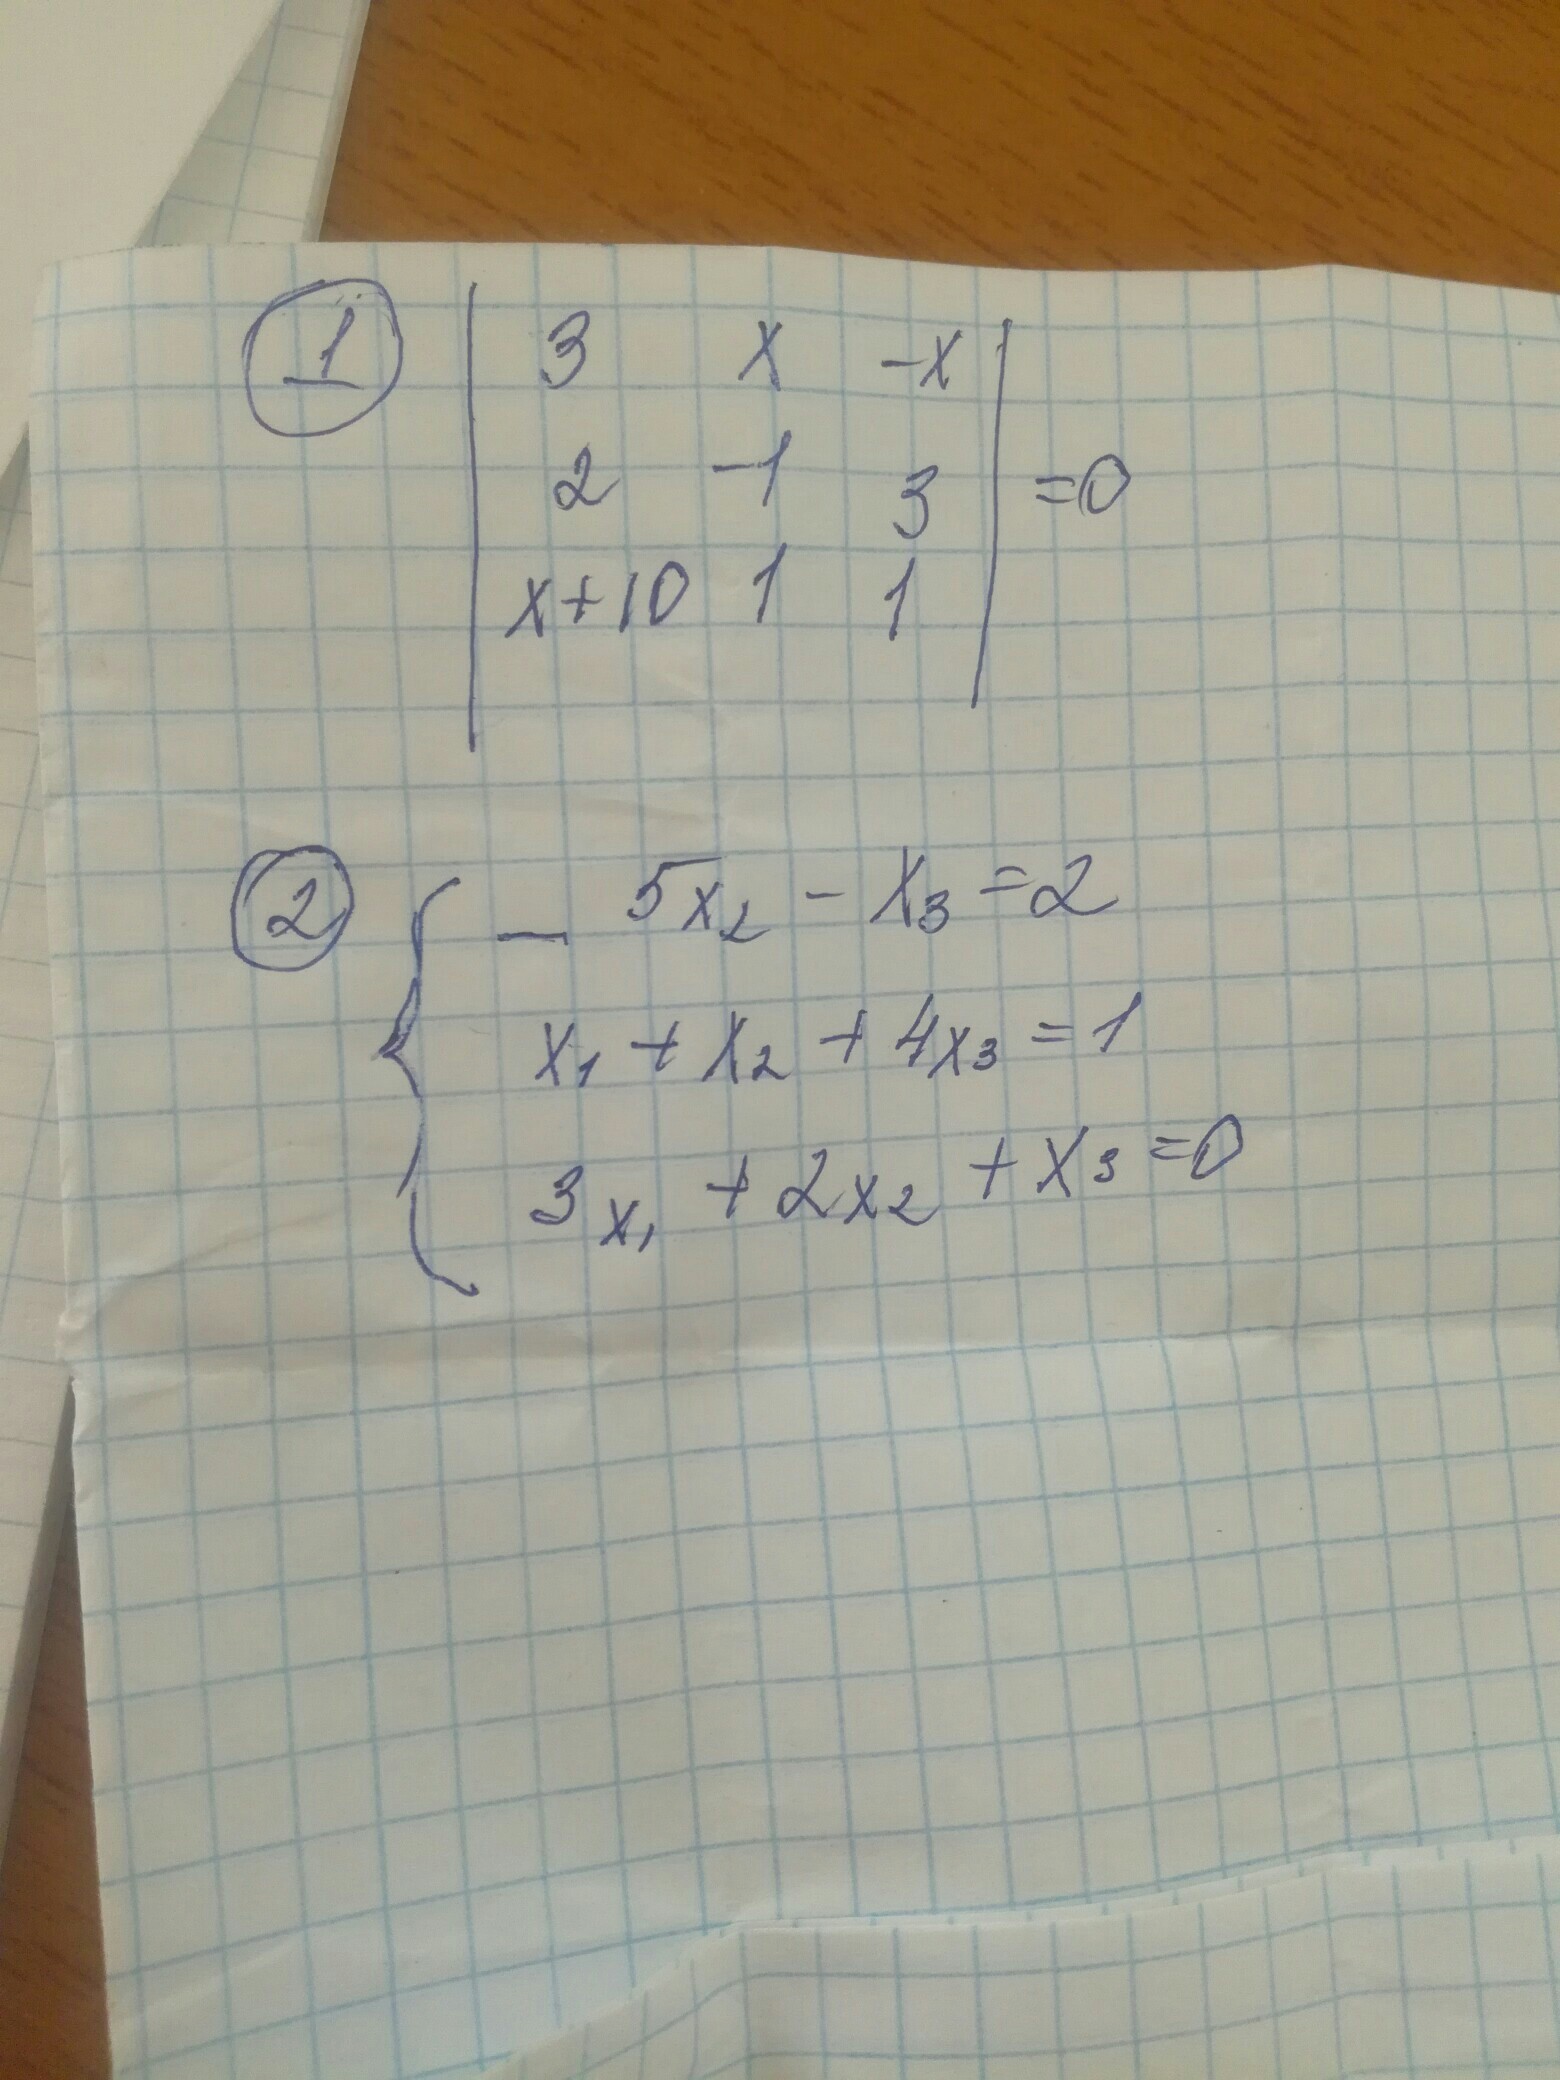 1 | 3 x -x |
| 2 -1 3 | =0
| x+10 1 1 |
2 { - 5x₂ - x₃ = 2
x₁ + x₂ + 4x₃ = 1
3x₁ + 2x₂ + x₃ = 0